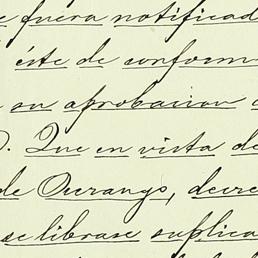 e fuera notificad
éste de conform
su aprobacion
D. Que en vista de
de Durango, decre
se librase suplica